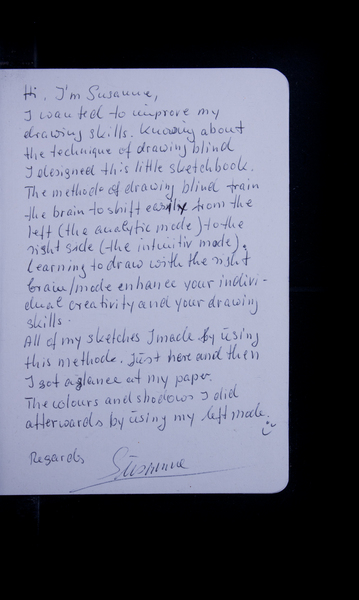 Hi, I'm Susanne,
I wanted to improve my
drawing skills. Knowing about
the technique of drawing blind
I designed this little sketchbook.
The methode of drawing blind train
the brain to shift easily from the
left (the analytic mode) to the
right side (the intuitiv mode).
Learning to draw with the right
brain/mode enhance your indivi-
dual creativity and your drawing
skills.
All of my sketches I made by using
this methode. Just here and then
I got a glance at my paper.
The colours and shadows I did
afterwards by using my left mode.
Regards,
Susanne